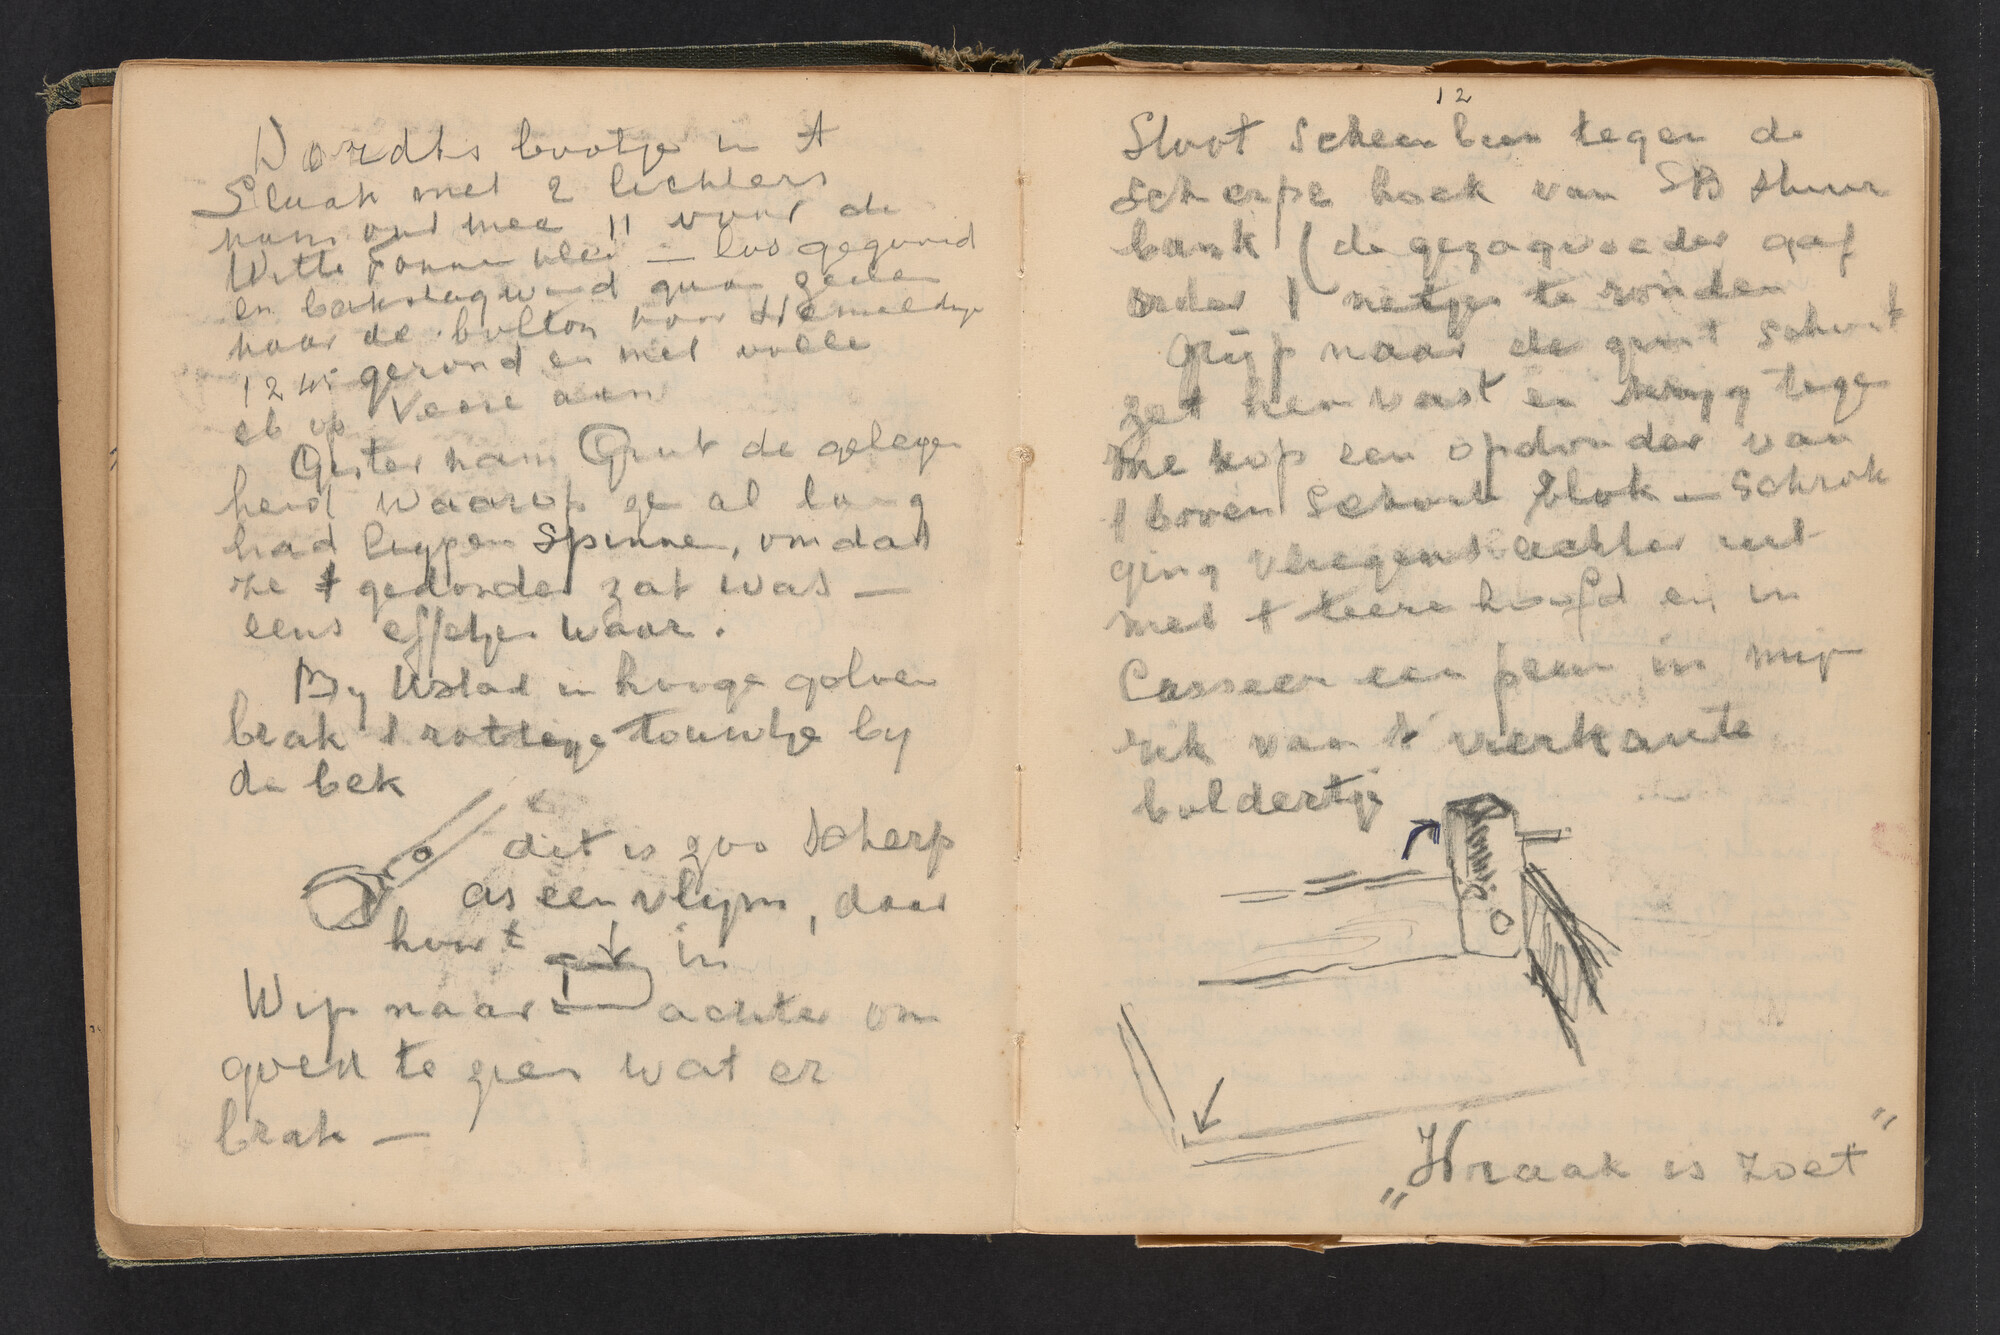 Dordts bootje in t
Slaak met 2 lichters
nam ons mee 11 voor de
Witte Tonnen vlei — losgegooid
en bakstagwind gaan zeilen
naar de bolton voor Kemeltje
12 45 gerond en met volle
eb op Veere aan
Gister nam Gput de gelegen
heid waarop ze al lang
had liggen Spinne, omdat
ze t gedonder zat was —
eens effetjes waar.
By Ustad in hooge golven
brak 1 rottige touwtje by
de bek
dit is zoo scherp
as een vlijm, daar
hout in
Wip naar achter om
goed te zien wat er
brak —
12
Stoot scheenbeen tegen de
scherpe hoek van SB stuur
bank (de gezagvoeder gaf
order 1 netjes te ronden
Grijp naar de groot schoot
zet hem vast en krijg tege
me kop een opdonder van
1 boven schoot blok — Schrok
ging vliegens achter uit
met t teere hoofd en in
Casseer een peun in mijn
rik van t vierkante
boldertje
„Wraak is zoet"